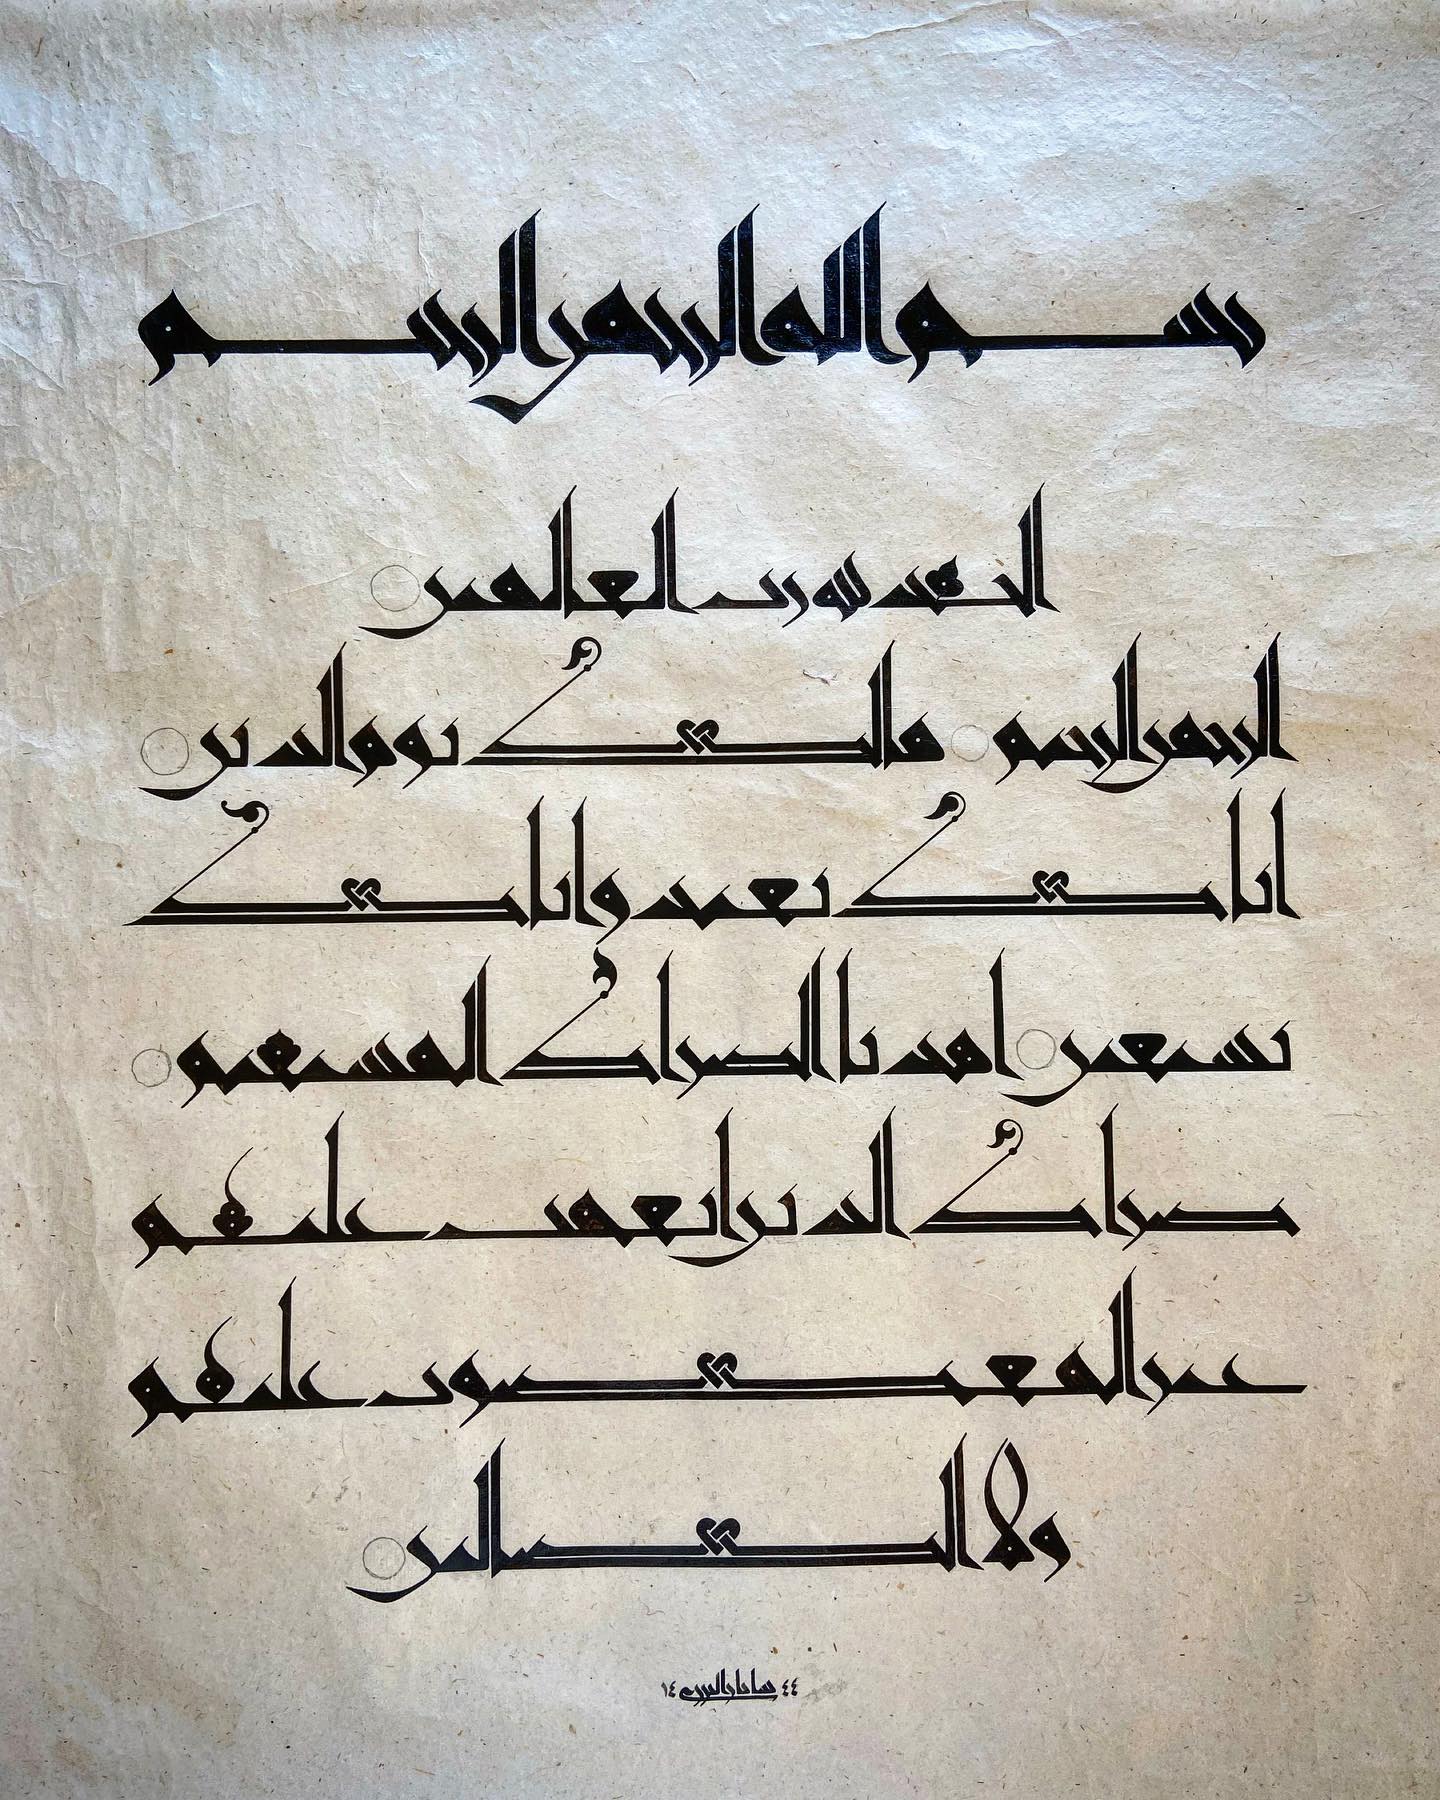 بسم الله الرحمن الرحيم
الحمد لله رب العالمين
الرحمن الرحيم مالك يوم الدين
اياك نعبد واياك
نستعين اهدنا الصراط المستقيم
صراط الذين انعمت عليهم
غير المغضوب عليهم
ولا الضالين
١٤ ٤٤